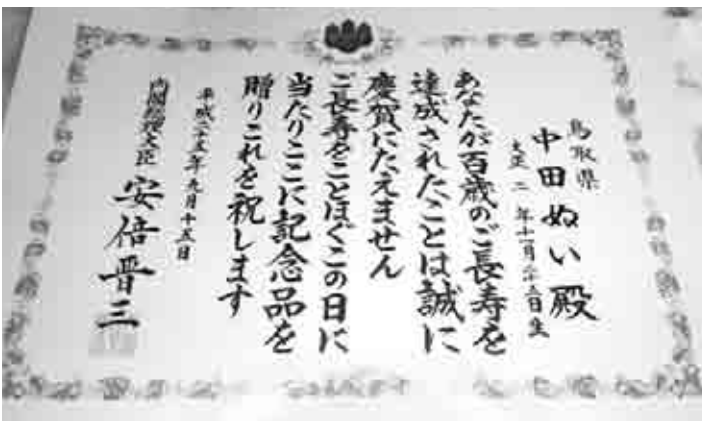 鳥取県
中田ぬい殿
大正二年十一月 日生
あなたが百歳のご長寿を
達成されたことは誠に
慶賀にたえません
ご長寿をことほぐこの日に
当たりここに記念品を
贈りこれを祝します
平成二十五年九月十五日
内閣総理大臣 安倍晋三